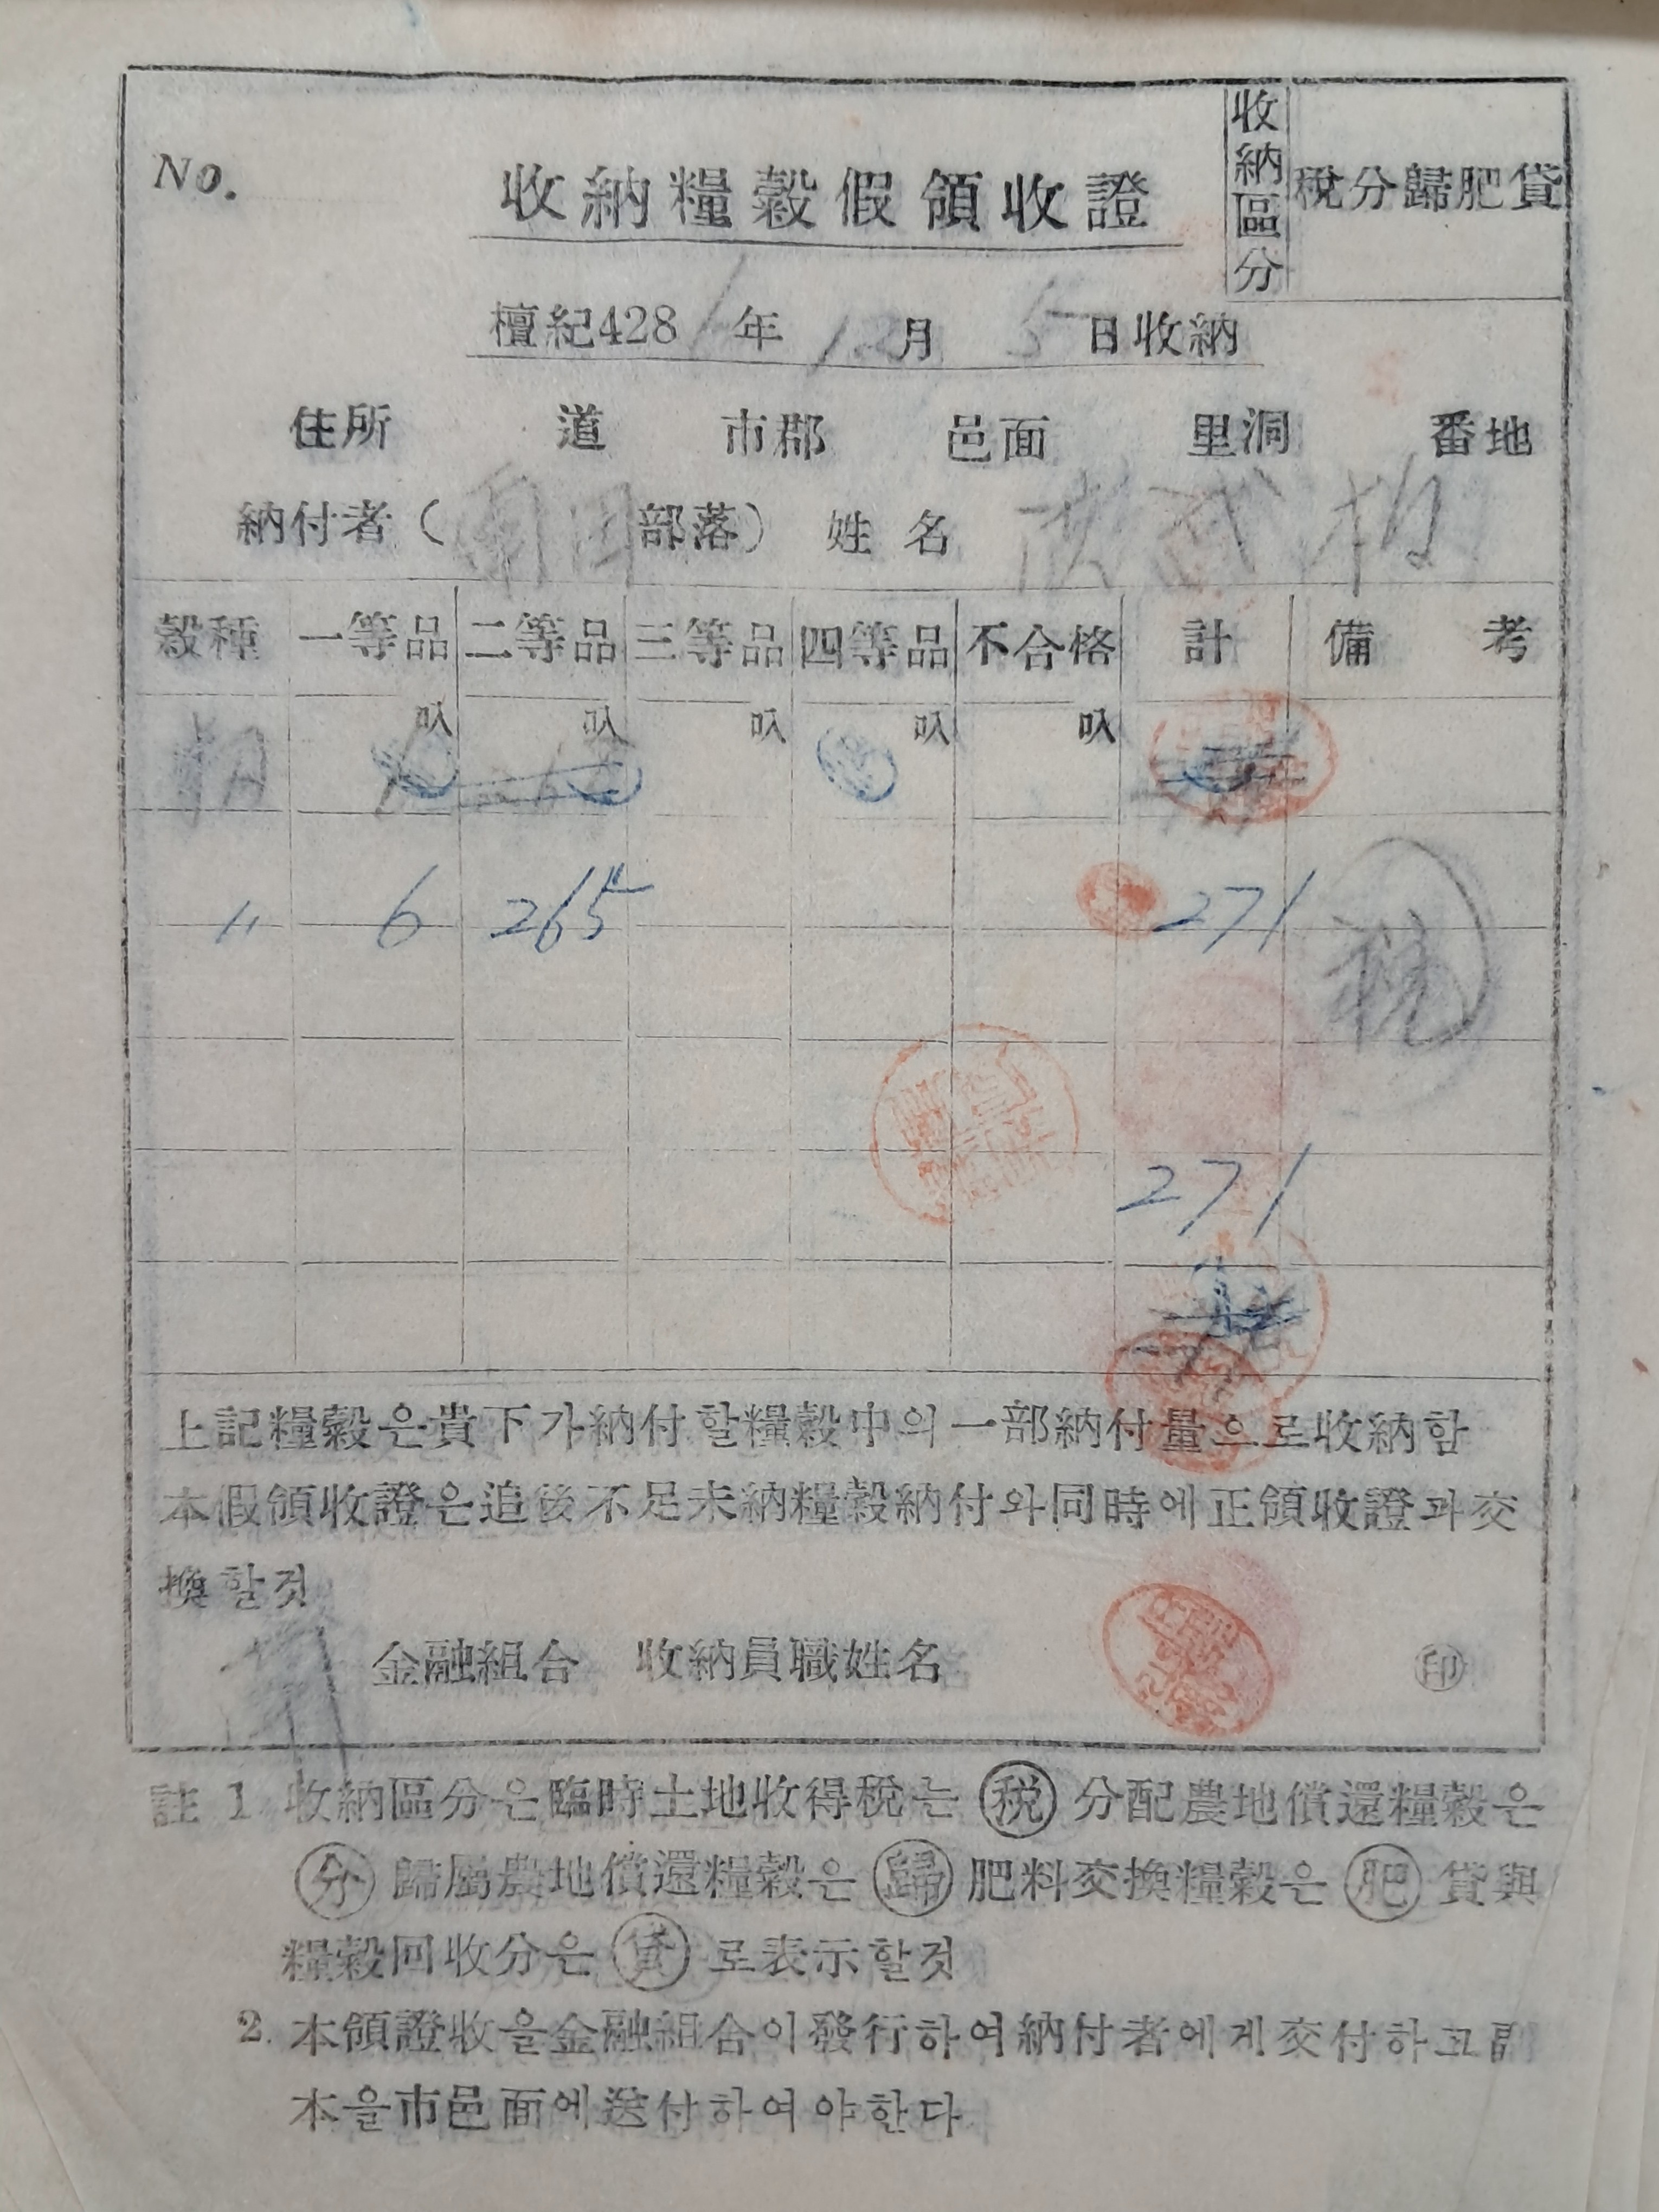 No.
收納糧穀假領收證
收納區分
稅分歸肥貸
檀紀4281年12月5日收納
住所 道 市郡 邑面 里洞 番地
納付者( 部落) 姓名
穀種 一等品 二等品 三等品 四等品 不合格 計 備考
叺 叺 叺 叺 叺
〃 6 265 271
稅
271
上記糧穀은貴下가納付할糧穀中의一部納付量으로收納함
本假領收證은追後不足未納糧穀納付와同時에正領收證과交
換할것
金融組合 收納員職姓名 ㊞
註 1. 收納區分은臨時土地收得稅는 稅 分配農地償還糧穀은
分 歸屬農地償還糧穀은 歸 肥料交換糧穀은 肥 貸與
糧穀回收分은 貸 로表示할것
2. 本領證收을金融組合이發行하여納付者에게交付하고副
本을市邑面에送付하여야한다